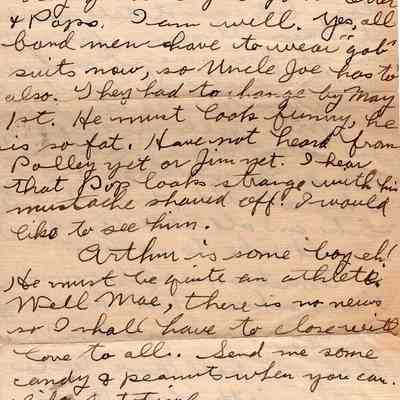 & Pops. I am well. Yes, all
band men have to wear "gob"
suits now, so Uncle Joe has to
also. They had to change by May
1st. He must look funny, he
is so fat. Have not heard from
Polley yet or Jim yet. I hear
that Pop looks strange with his
mustache shaved off. I would
like to see him.
Arthur is some boy eh!
He must be quite an athlete.
Well Mae, there is no news
so I shall have to close with
love to all. Send me some
candy & peanuts when you can.